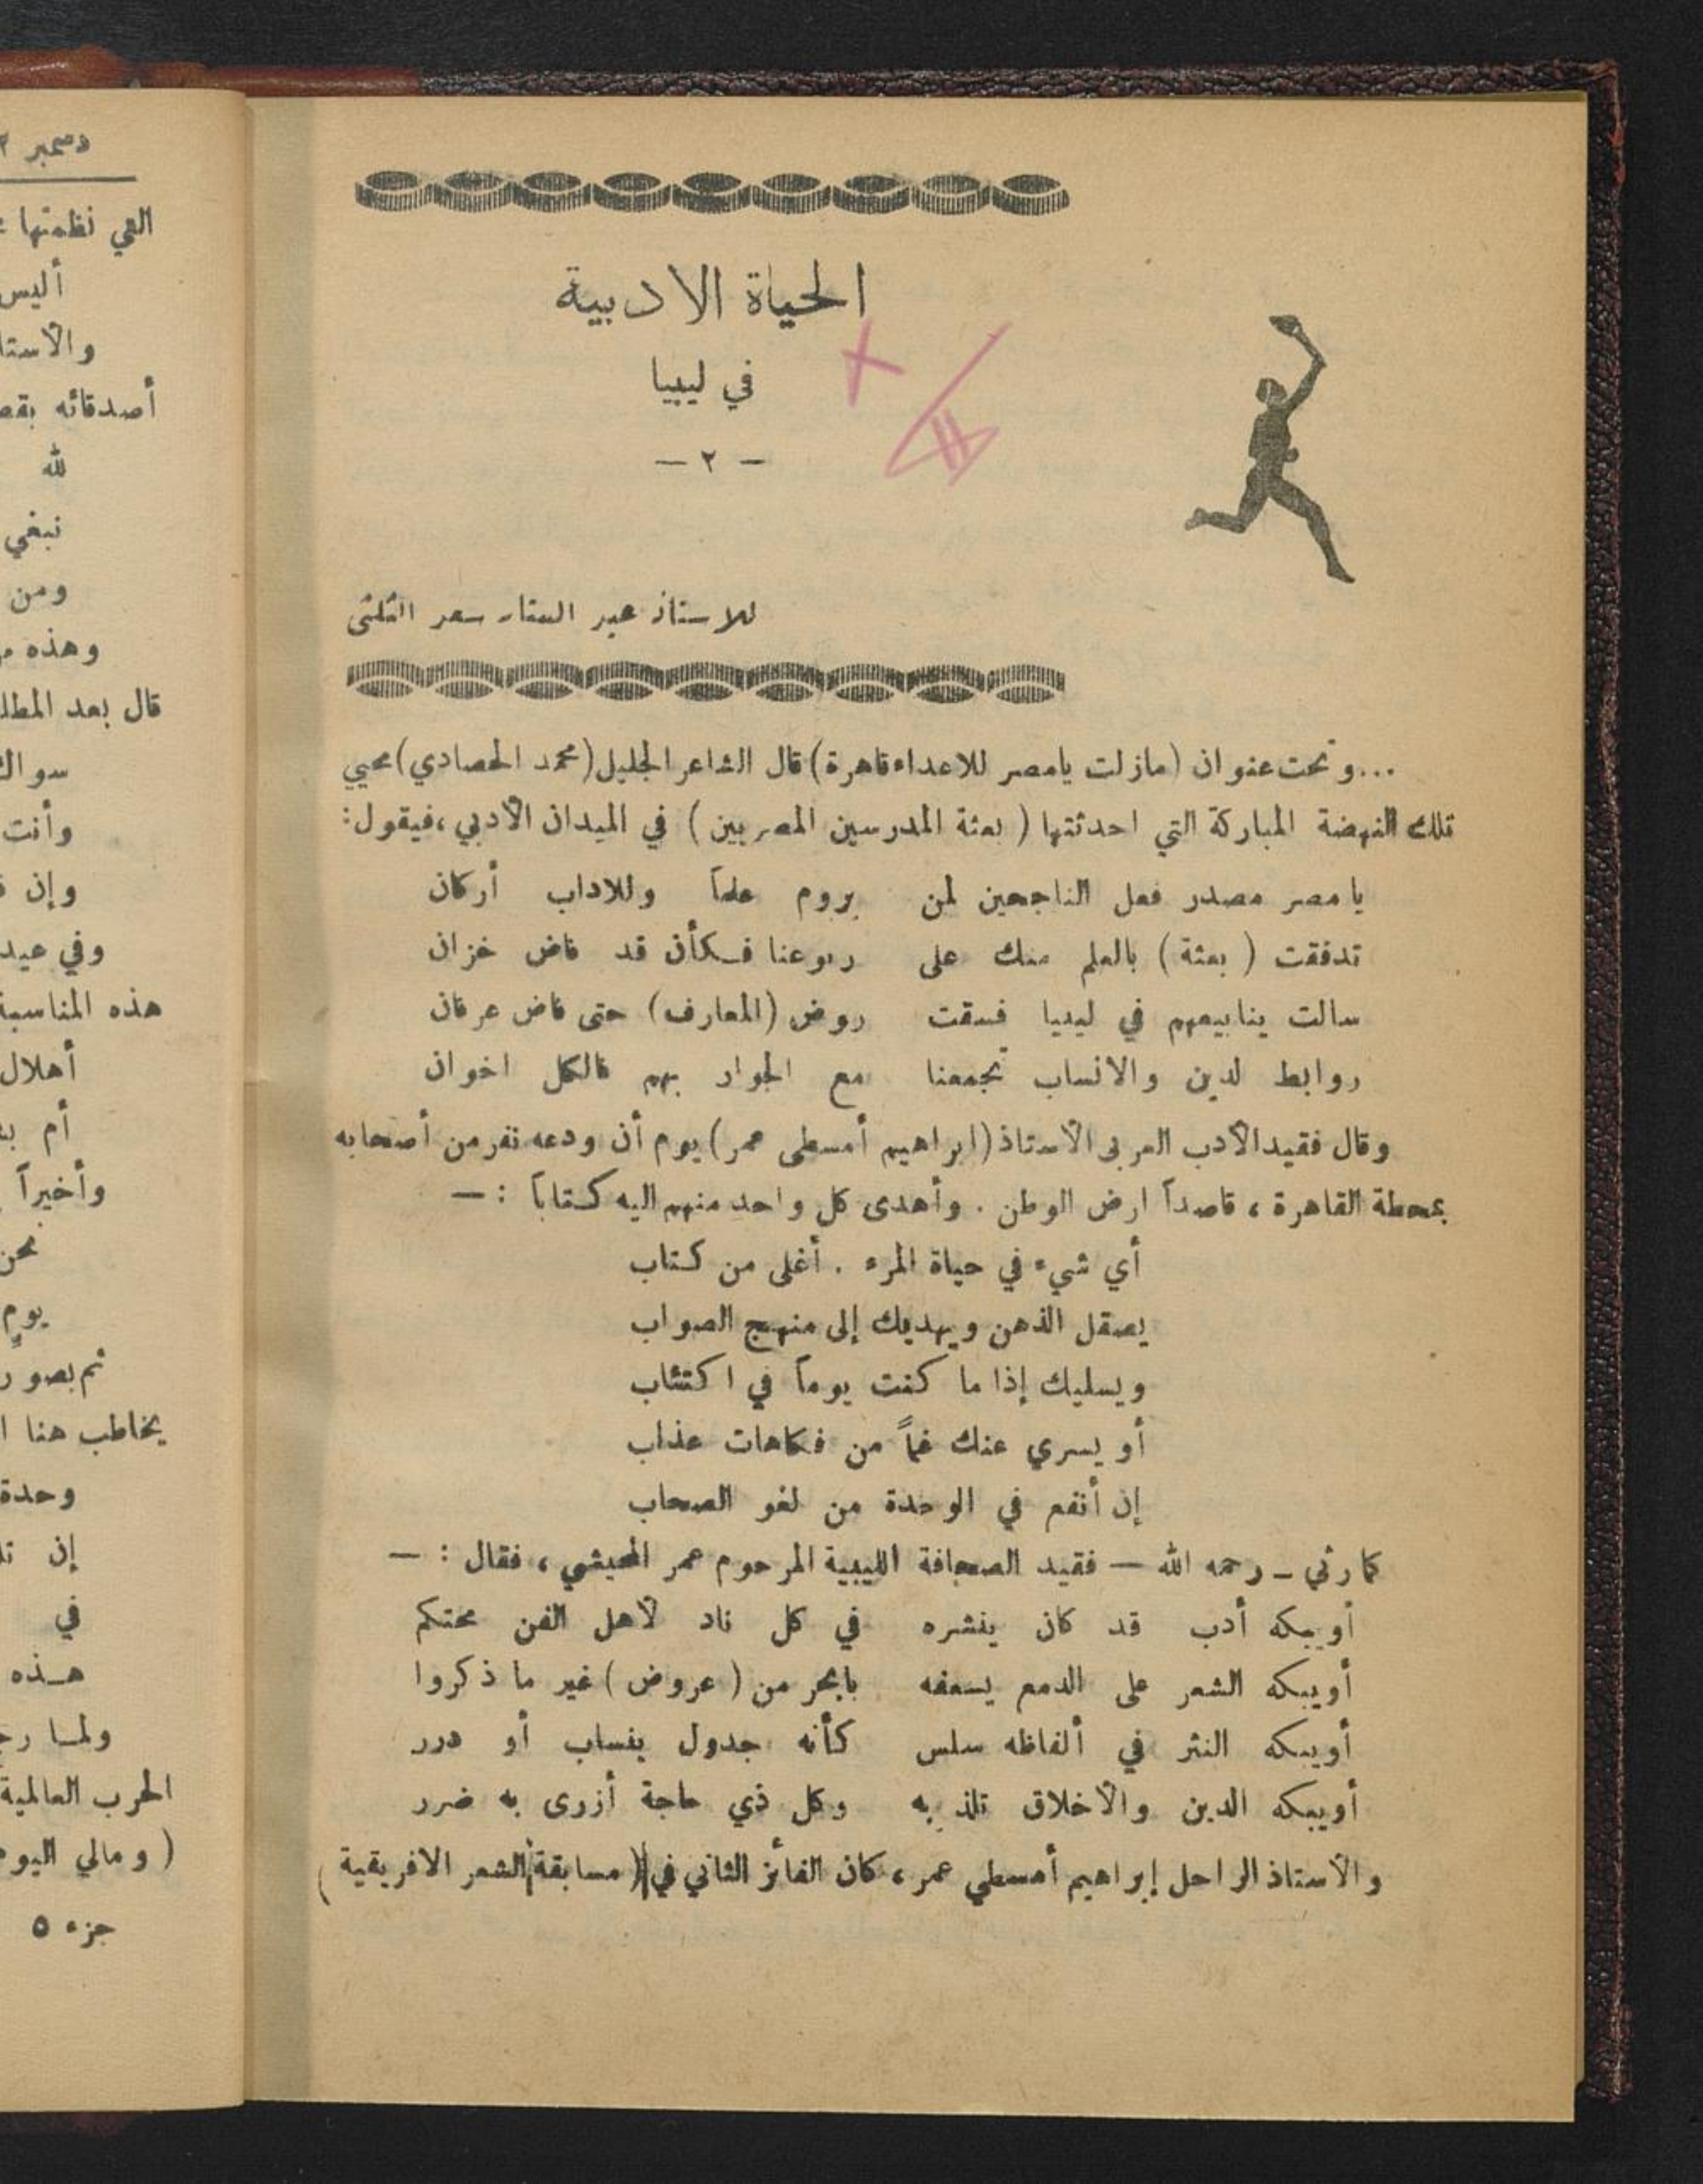 الحياة الادبية
في ليبيا
— ٢ —
للاستاذ عبد الستار سعد الثلثى
...وتحت عنوان (مازلت يامصر للاعداء قاهرة) قال الشاعر الجليل (محمد الحصادي) محيي
تلك النهضة المباركة التي احدثتها ( بعثة المدرسين المصريين ) في الميدان الأدبي، فيقول:
يا مصر مصدر فعل الناجحين لمن يروم علماً وللاداب أركان
تدفقت ( بعثة ) بالعلم منك على ربوعنا فكأن قد فاض خزان
سالت ينابيعهم في ليبيا فسقت روض (المعارف) حتى فاض عرفان
روابط لدين والانساب تجمعنا مع الجوار بهم فالكل اخوان
وقال فقيد الأدب العربى الأستاذ (ابراهيم أمسطى عمر) يوم أن ودعه نفر من أصحابه
بمحطة القاهرة ، قاصداً ارض الوطن . وأهدى كل واحد منهم اليه كتاباً : —
أي شيء في حياة المرء . أغلى من كتاب
يصقل الذهن ويهديك إلى منهج الصواب
ويسليك إذا ما كنت يوماً في اكتئاب
أو يسري عنك غماً من فكاهات عذاب
إن أنفع في الوحدة من لغو الصحاب
كما رثي — رحمه الله — فقيد الصحافة الليبية المرحوم عمر المحيشي ، فقال : —
أويبكه أدب قد كان ينشره في كل ناد لأهل الفن محتكم
أويبكه الشعر على الدمع يسعفه بابحر من ( عروض ) غير ما ذكروا
أويبكه النثر في ألفاظه سلس كأنه جدول ينساب أو درر
أويبكه الدين والأخلاق تلذ به وكل ذي حاجة أزرى به ضرر
والأستاذ الراحل إبراهيم أمسطي عمر ، كان الفائز الثاني في ( مسابقة الشعر الافريقية )
دسمبر
التي نظمتها
أليس
والأستا
أصدقائه
لله
نبغي
ومن
وهذه
قال بعد
وأنت
وإن
وفي عيد
هذه المناسبة
أهلال
أم
وأخيراً
نحن
يومٍ
يخاطب هنا
وحدة
إن
في
هذه
ولما
الحرب العالمية
( ومالي اليوم
جزء ٥